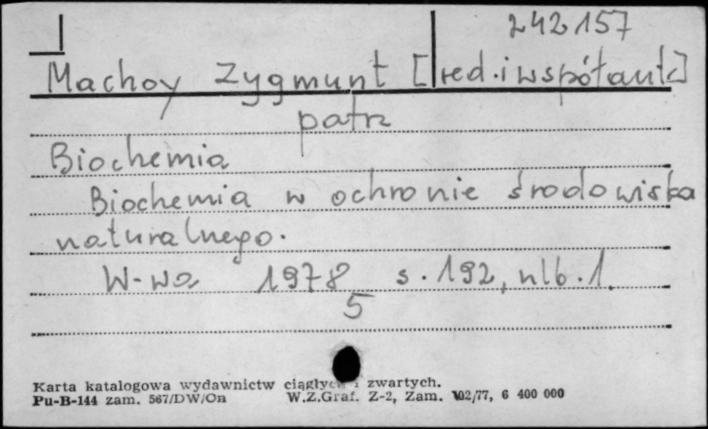 242157
Machoy Zygmunt [red. i współaut.]
patrz
Biochemia
Biochemia w ochronie środowiska
naturalnego.
W-wa 1978 s. 192, nlb. 1.
5
Karta katalogowa wydawnictw ciągłych i zwartych.
Pu-B-144 zam. 567/DW/On W.Z.Graf. Z-2, Zam. 102/77, 6 400 000